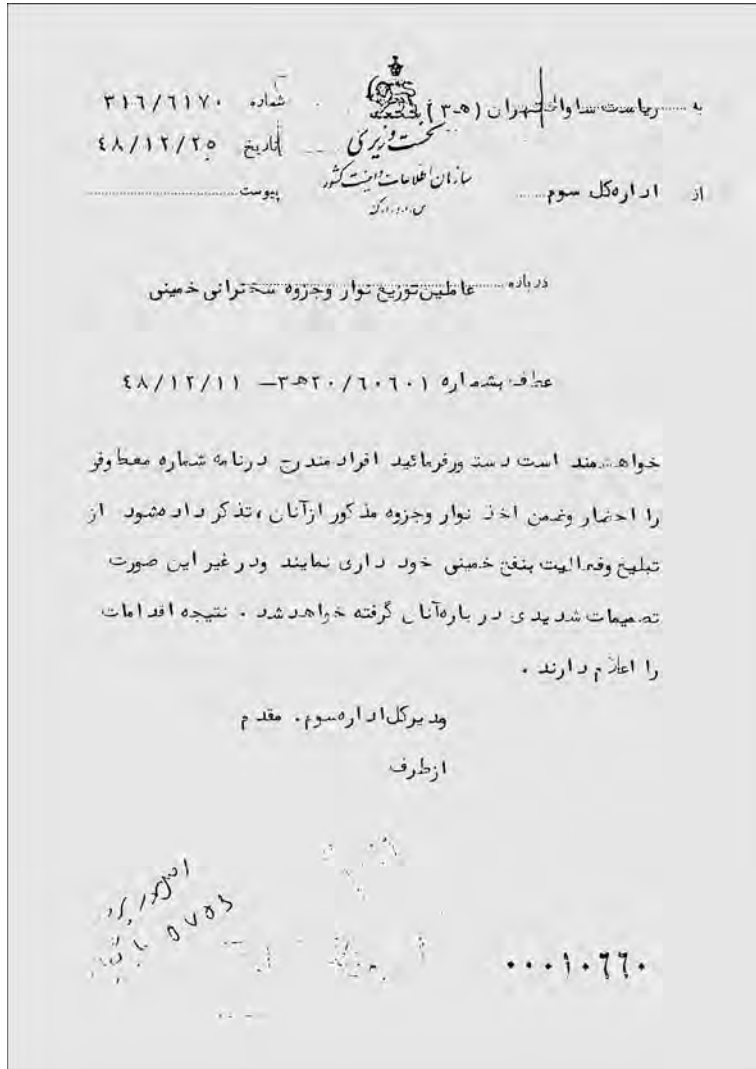 به ریاست ساواک تهران (ه‍-۳)
شماره ۳۱۶/۶۱۷۰
نخست وزیری
تاریخ ۴۸/۱۲/۲۵
سازمان اطلاعات و امنیت کشور
از اداره کل سوم
پیوست
س.ا.و.ا.ک
درباره عاملین توزیع نوار وجزوه سخنرانی خمینی
عطف بشماره ۲۰/۶۰۶۰۱ه‍۳- ۴۸/۱۲/۱۱
خواهشمند است دستورفرمائید افراد مندرج درنامه شماره معطوفی
را احضار وضمن اخذ نوار وجزوه مذکور ازآنان ،تذکر داده‌شود از
تبلیغ وفعالیت بنفع خمینی خود داری نمایند ودر غیر این صورت
تصمیمات شدیدی در باره‌آنان گرفته خواهدشد . نتیجه اقدامات
را اعلام دارند .
مدیرکل اداره‌سوم. مقدم
ازطرف
۰۰۰۱۰۶۶۰